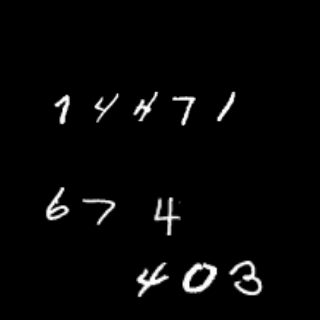 1 4 4 7 1
6 7 4
4 0 3